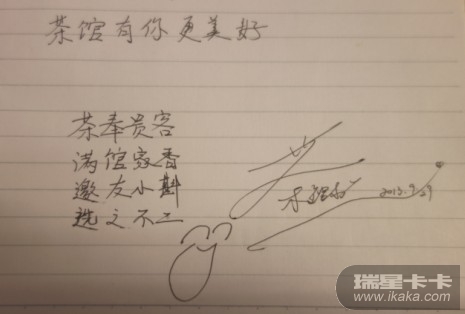 茶馆有你更美好
茶奉贵客
满馆家香
邀友小斟
选之不二
2013.9.29
瑞星卡卡
www.ikaka.com